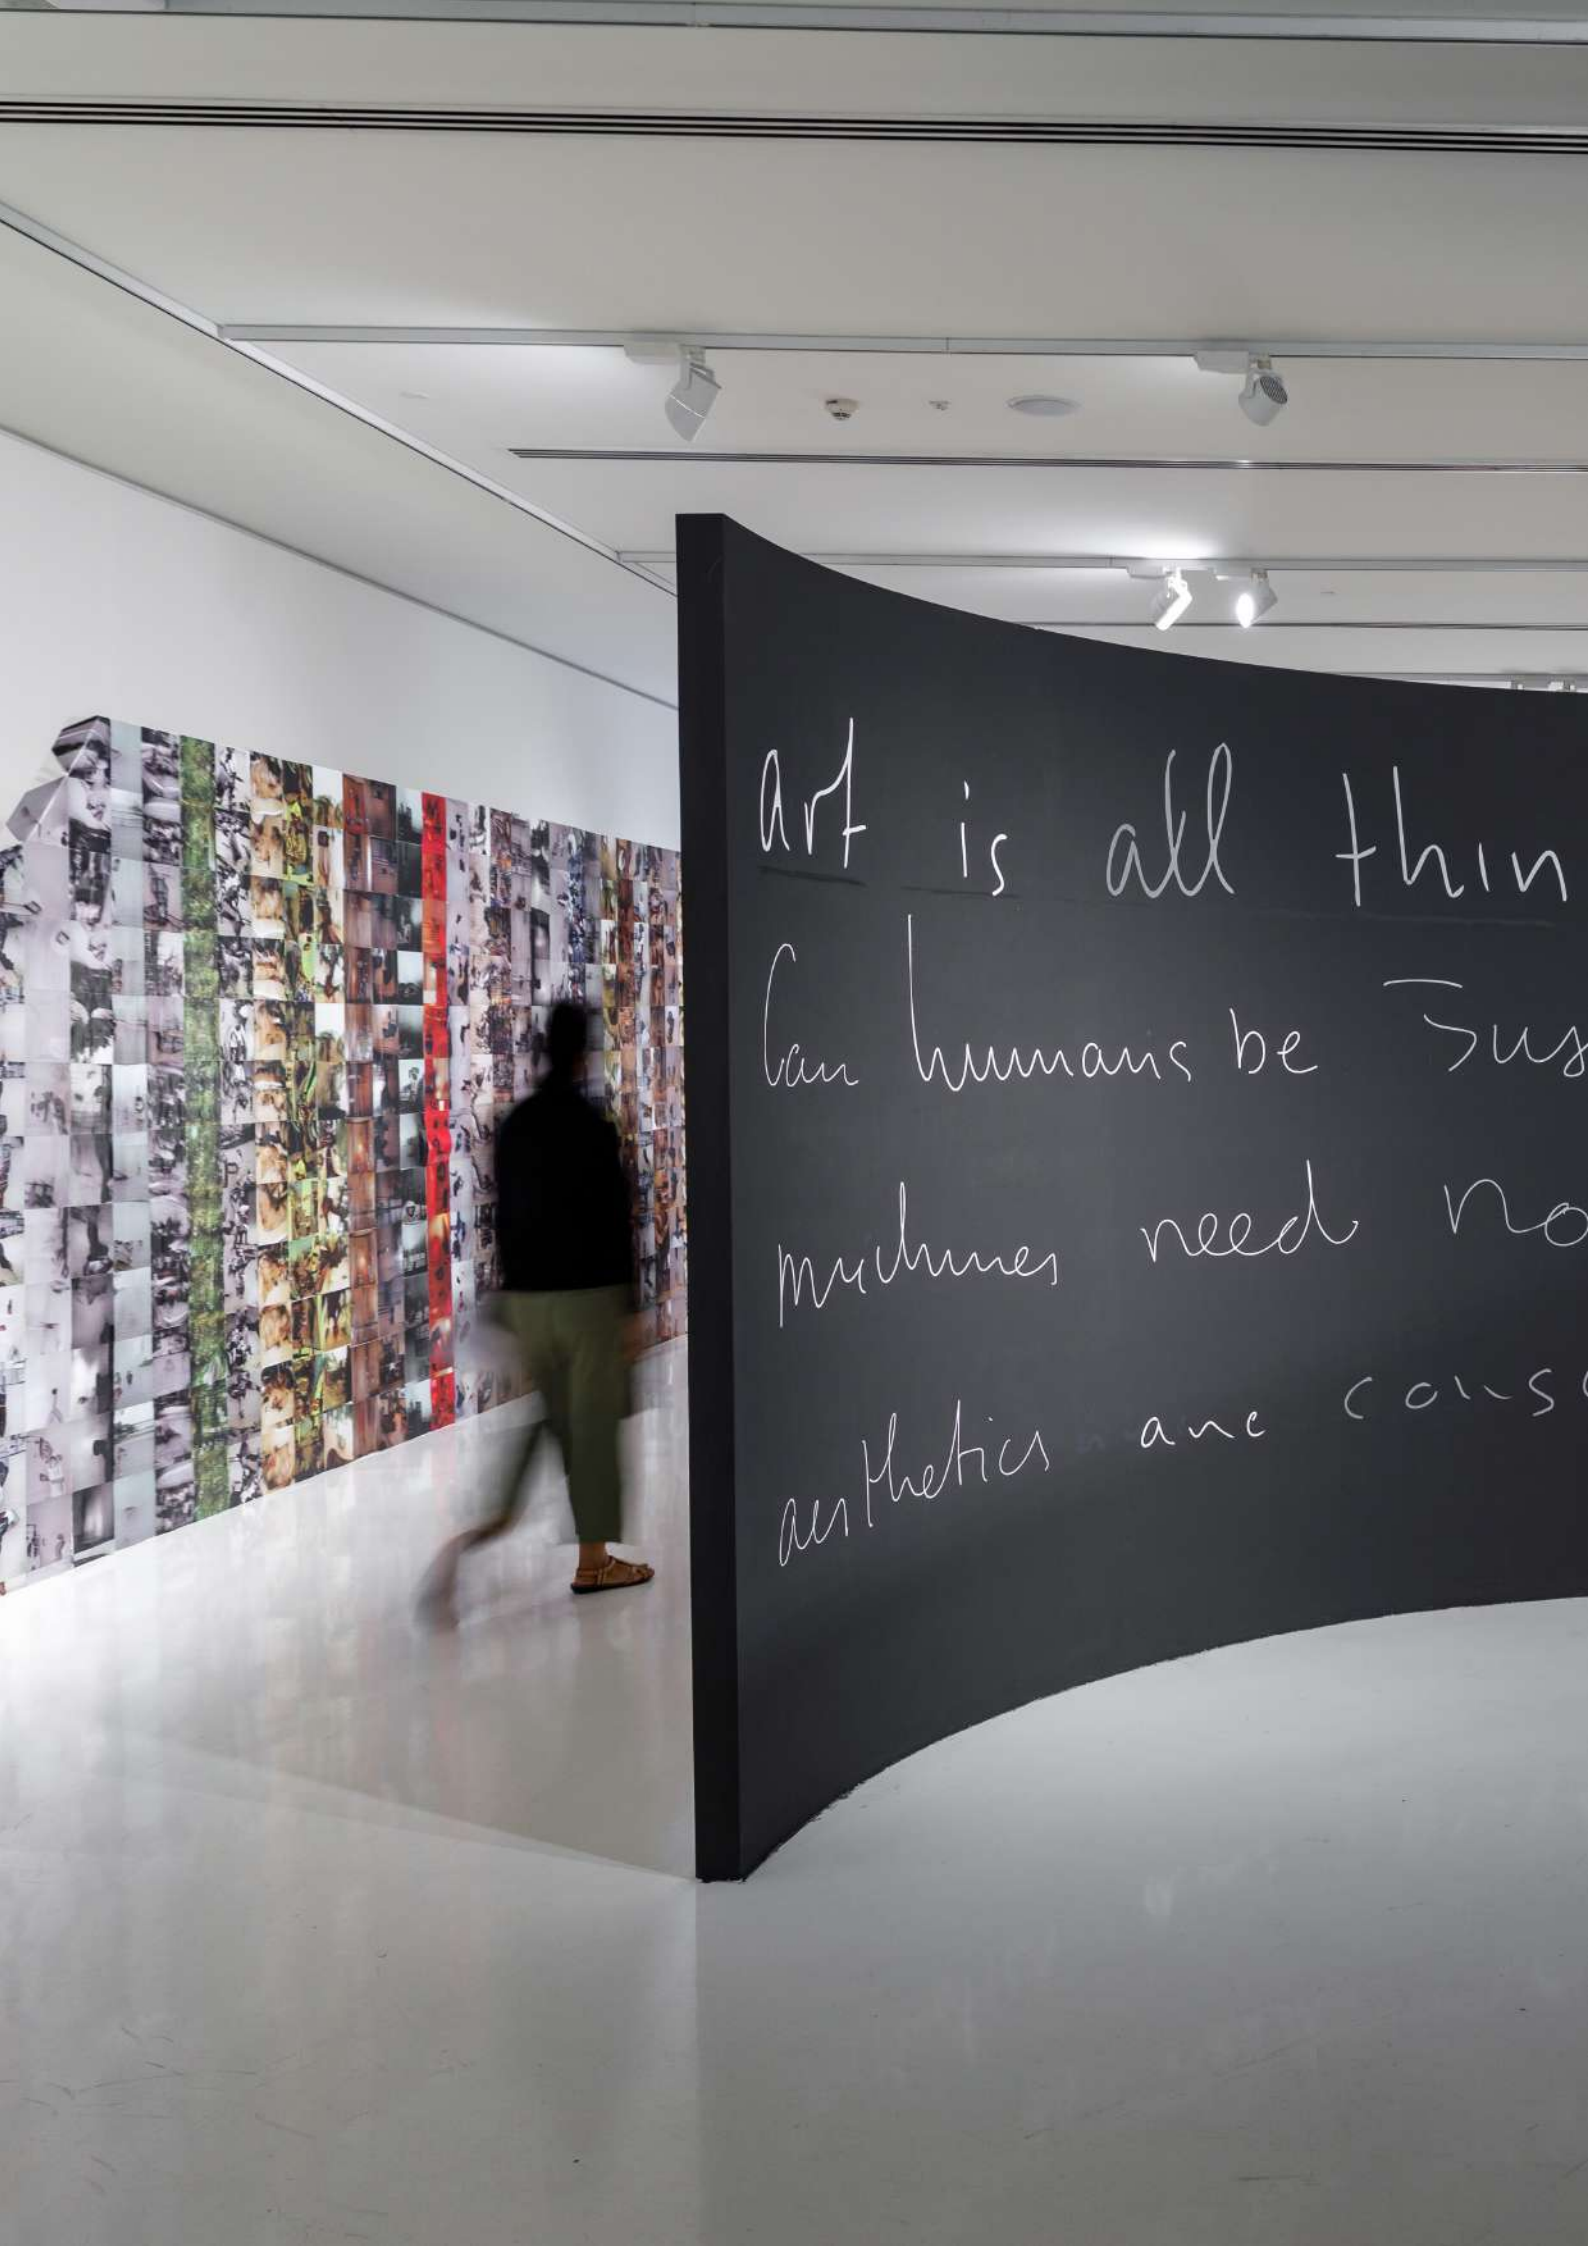 art is all thin
Can humans be sus
machines need no
aesthetics are cons